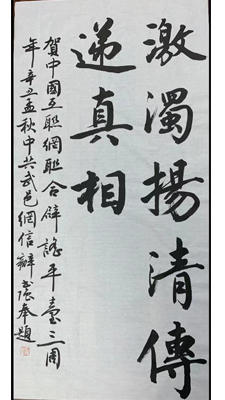 激濁揚清傳
递真相
賀中國互联網联合辟謠平臺三周
年辛丑孟秋中共武邑網信辦奉題